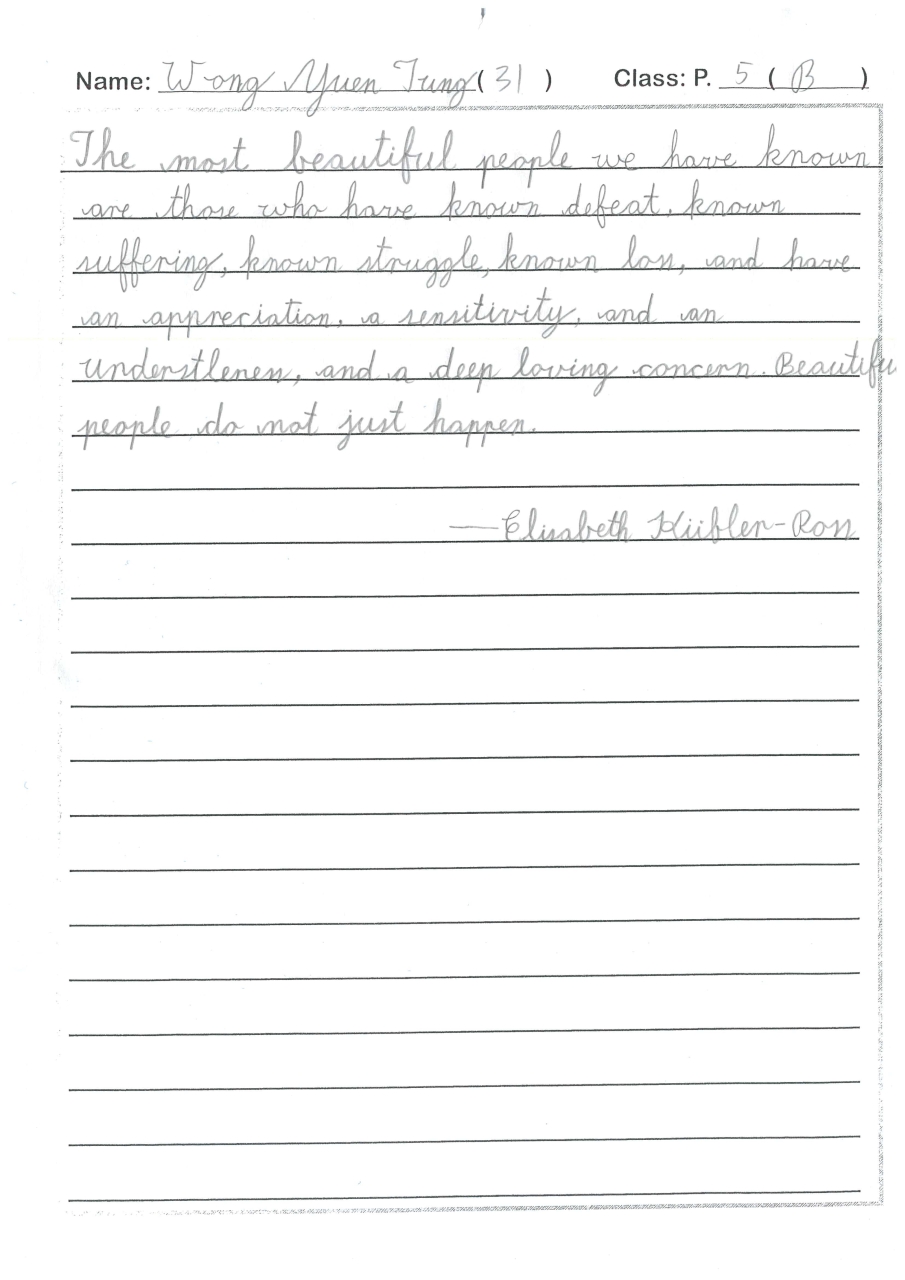 Name: Wong Yuen Tung ( 31 ) Class: P. 5 ( B )
The most beautiful people we have known
are those who have known defeat, known
suffering, known struggle, known loss, and have
an appreciation, a sensitivity, and an
understlenen, and a deep loving concern. Beautifu
people do not just happen.
—Elisabeth Kübler-Ross